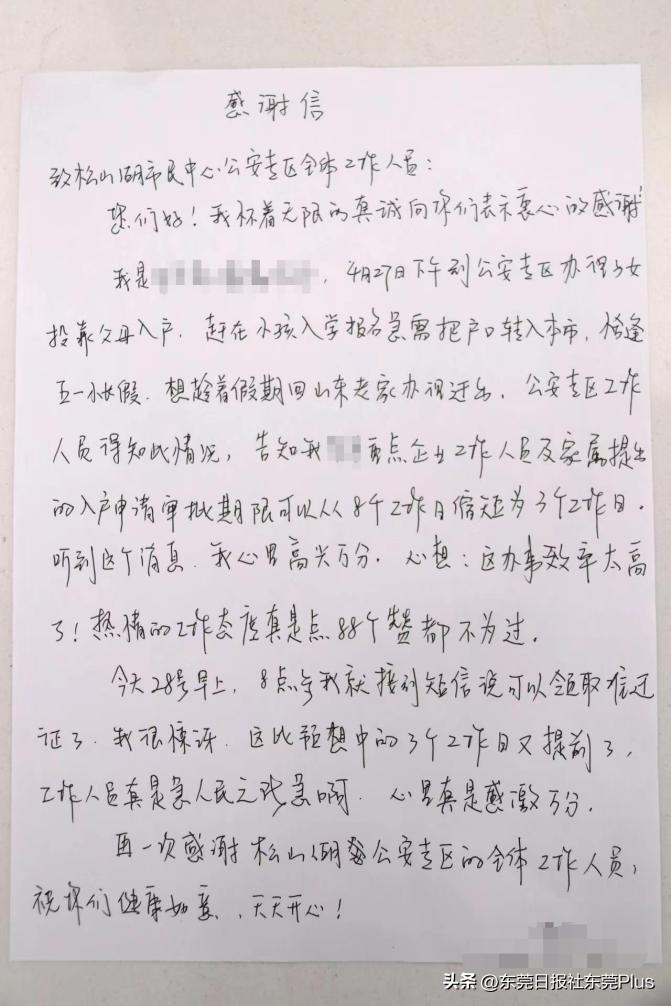 感谢信
致松山湖市民中心公安专区全体工作人员：
您们好！我怀着无限的真诚向你们表示衷心的感谢！
我是，4月27日下午到公安专区办理子女
投靠父母入户，赶在小孩入学报名急需把户口转入本市，恰逢
五一小长假，想趁着假期回山东老家办理迁出，公安专区工作
人员得知此情况，告知我重点企业工作人员及家属提出
的入户申请审批期限可以从8个工作日缩短为3个工作日。
听到这个消息，我心里高兴万分。心想：这办事效率太高
了！热情的工作态度真是点88个赞都不为过。
今天28号早上，8点多我就接到短信说可以领取准迁
证了，我很惊讶，这比预想中的3个工作日又提前了，
工作人员真是急人民之所急啊，心里真是感激万分。
再一次感谢松山湖公安专区的全体工作人员，
祝你们健康如意、天天开心！
头条@东莞日报社东莞Plus